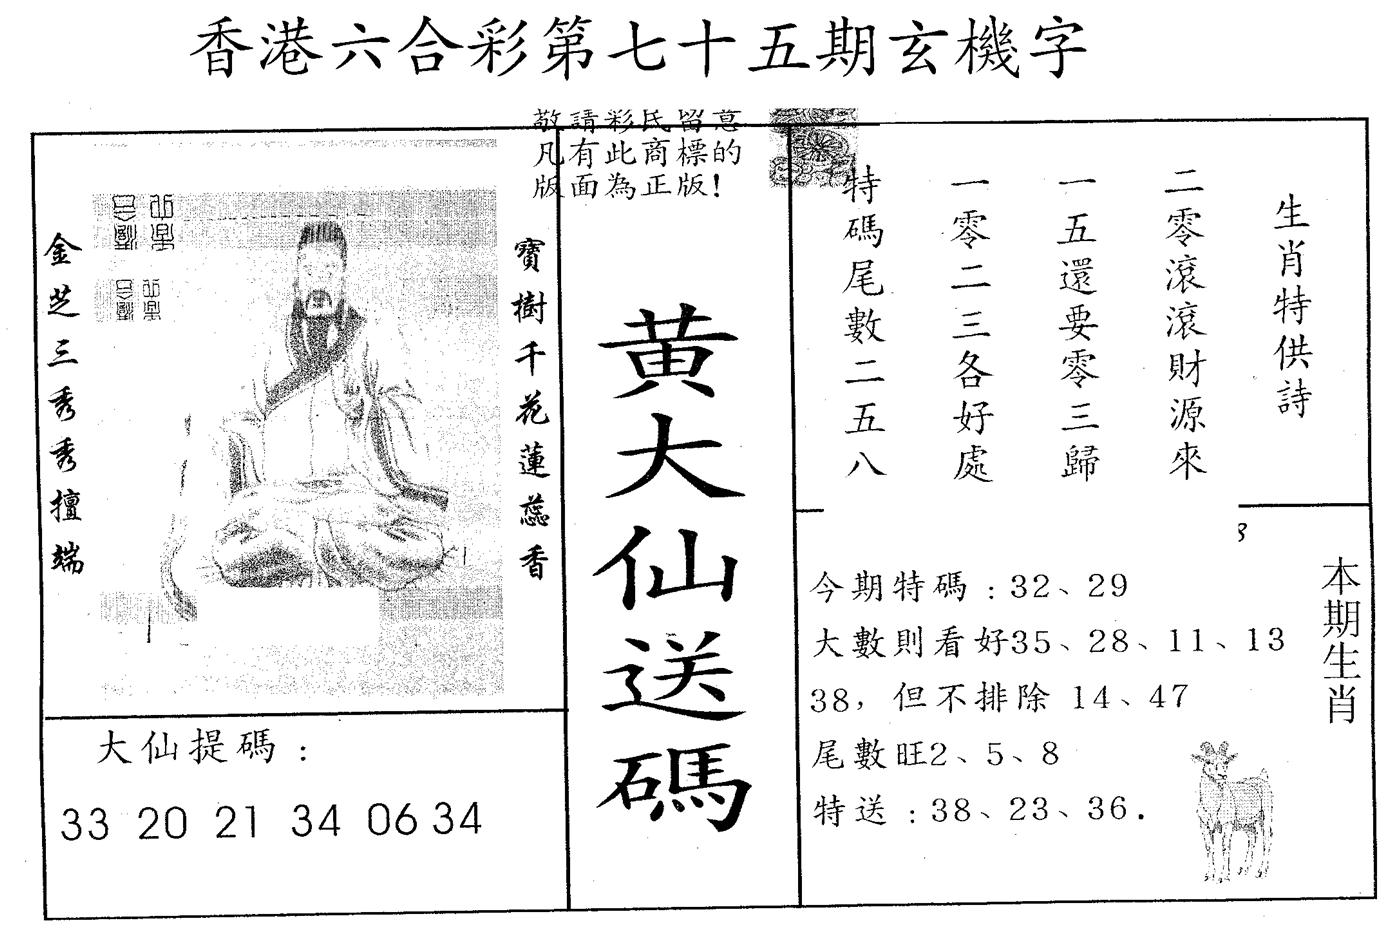 香港六合彩第七十五期玄機字
敬請彩民留意
凡有此商標的
版面為正版!
寶樹千花蓮蕊香
金芝三秀秀擅端
大仙提碼：
33 20 21 34 06 34
黃大仙送碼
生肖特供詩
二零滾滾財源來
一五還要零三歸
一零二三各好處
特碼尾數二五八
本期生肖
今期特碼：32、29
大數則看好35、28、11、13
38，但不排除 14、47
尾數旺2、5、8
特送：38、23、36.